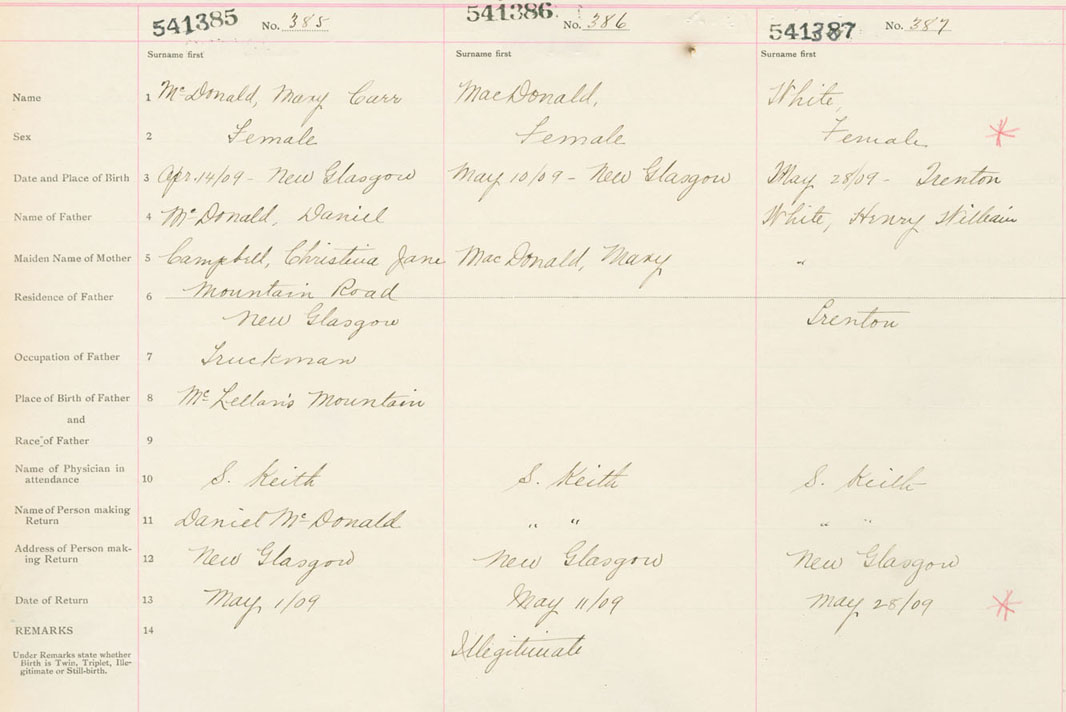 541385 No. 385 541386 No. 386 541387 No. 387
Surname first Surname first Surname first
Name 1 McDonald, Mary Carr MacDonald, White,
Sex 2 Female Female Female
Date and Place of Birth 3 Apr 14/09 - New Glasgow May 10/09 - New Glasgow May 28/09 - Trenton
Name of Father 4 McDonald, Daniel White, Henry William
Maiden Name of Mother 5 Campbell, Christina Jane MacDonald, Mary "
Residence of Father 6 Mountain Road
New Glasgow Trenton
Occupation of Father 7 Truckman
Place of Birth of Father 8 McLellan's Mountain
and
Race of Father 9
Name of Physician in
attendance 10 S. Keith S. Keith S. Keith
Name of Person making
Return 11 Daniel McDonald " " " "
Address of Person mak-
ing Return 12 New Glasgow New Glasgow New Glasgow
Date of Return 13 May 1/09 May 11/09 May 28/09
REMARKS 14
Illegitimate
Under Remarks state whether
Birth is Twin, Triplet, Ille-
gitimate or Still-birth.